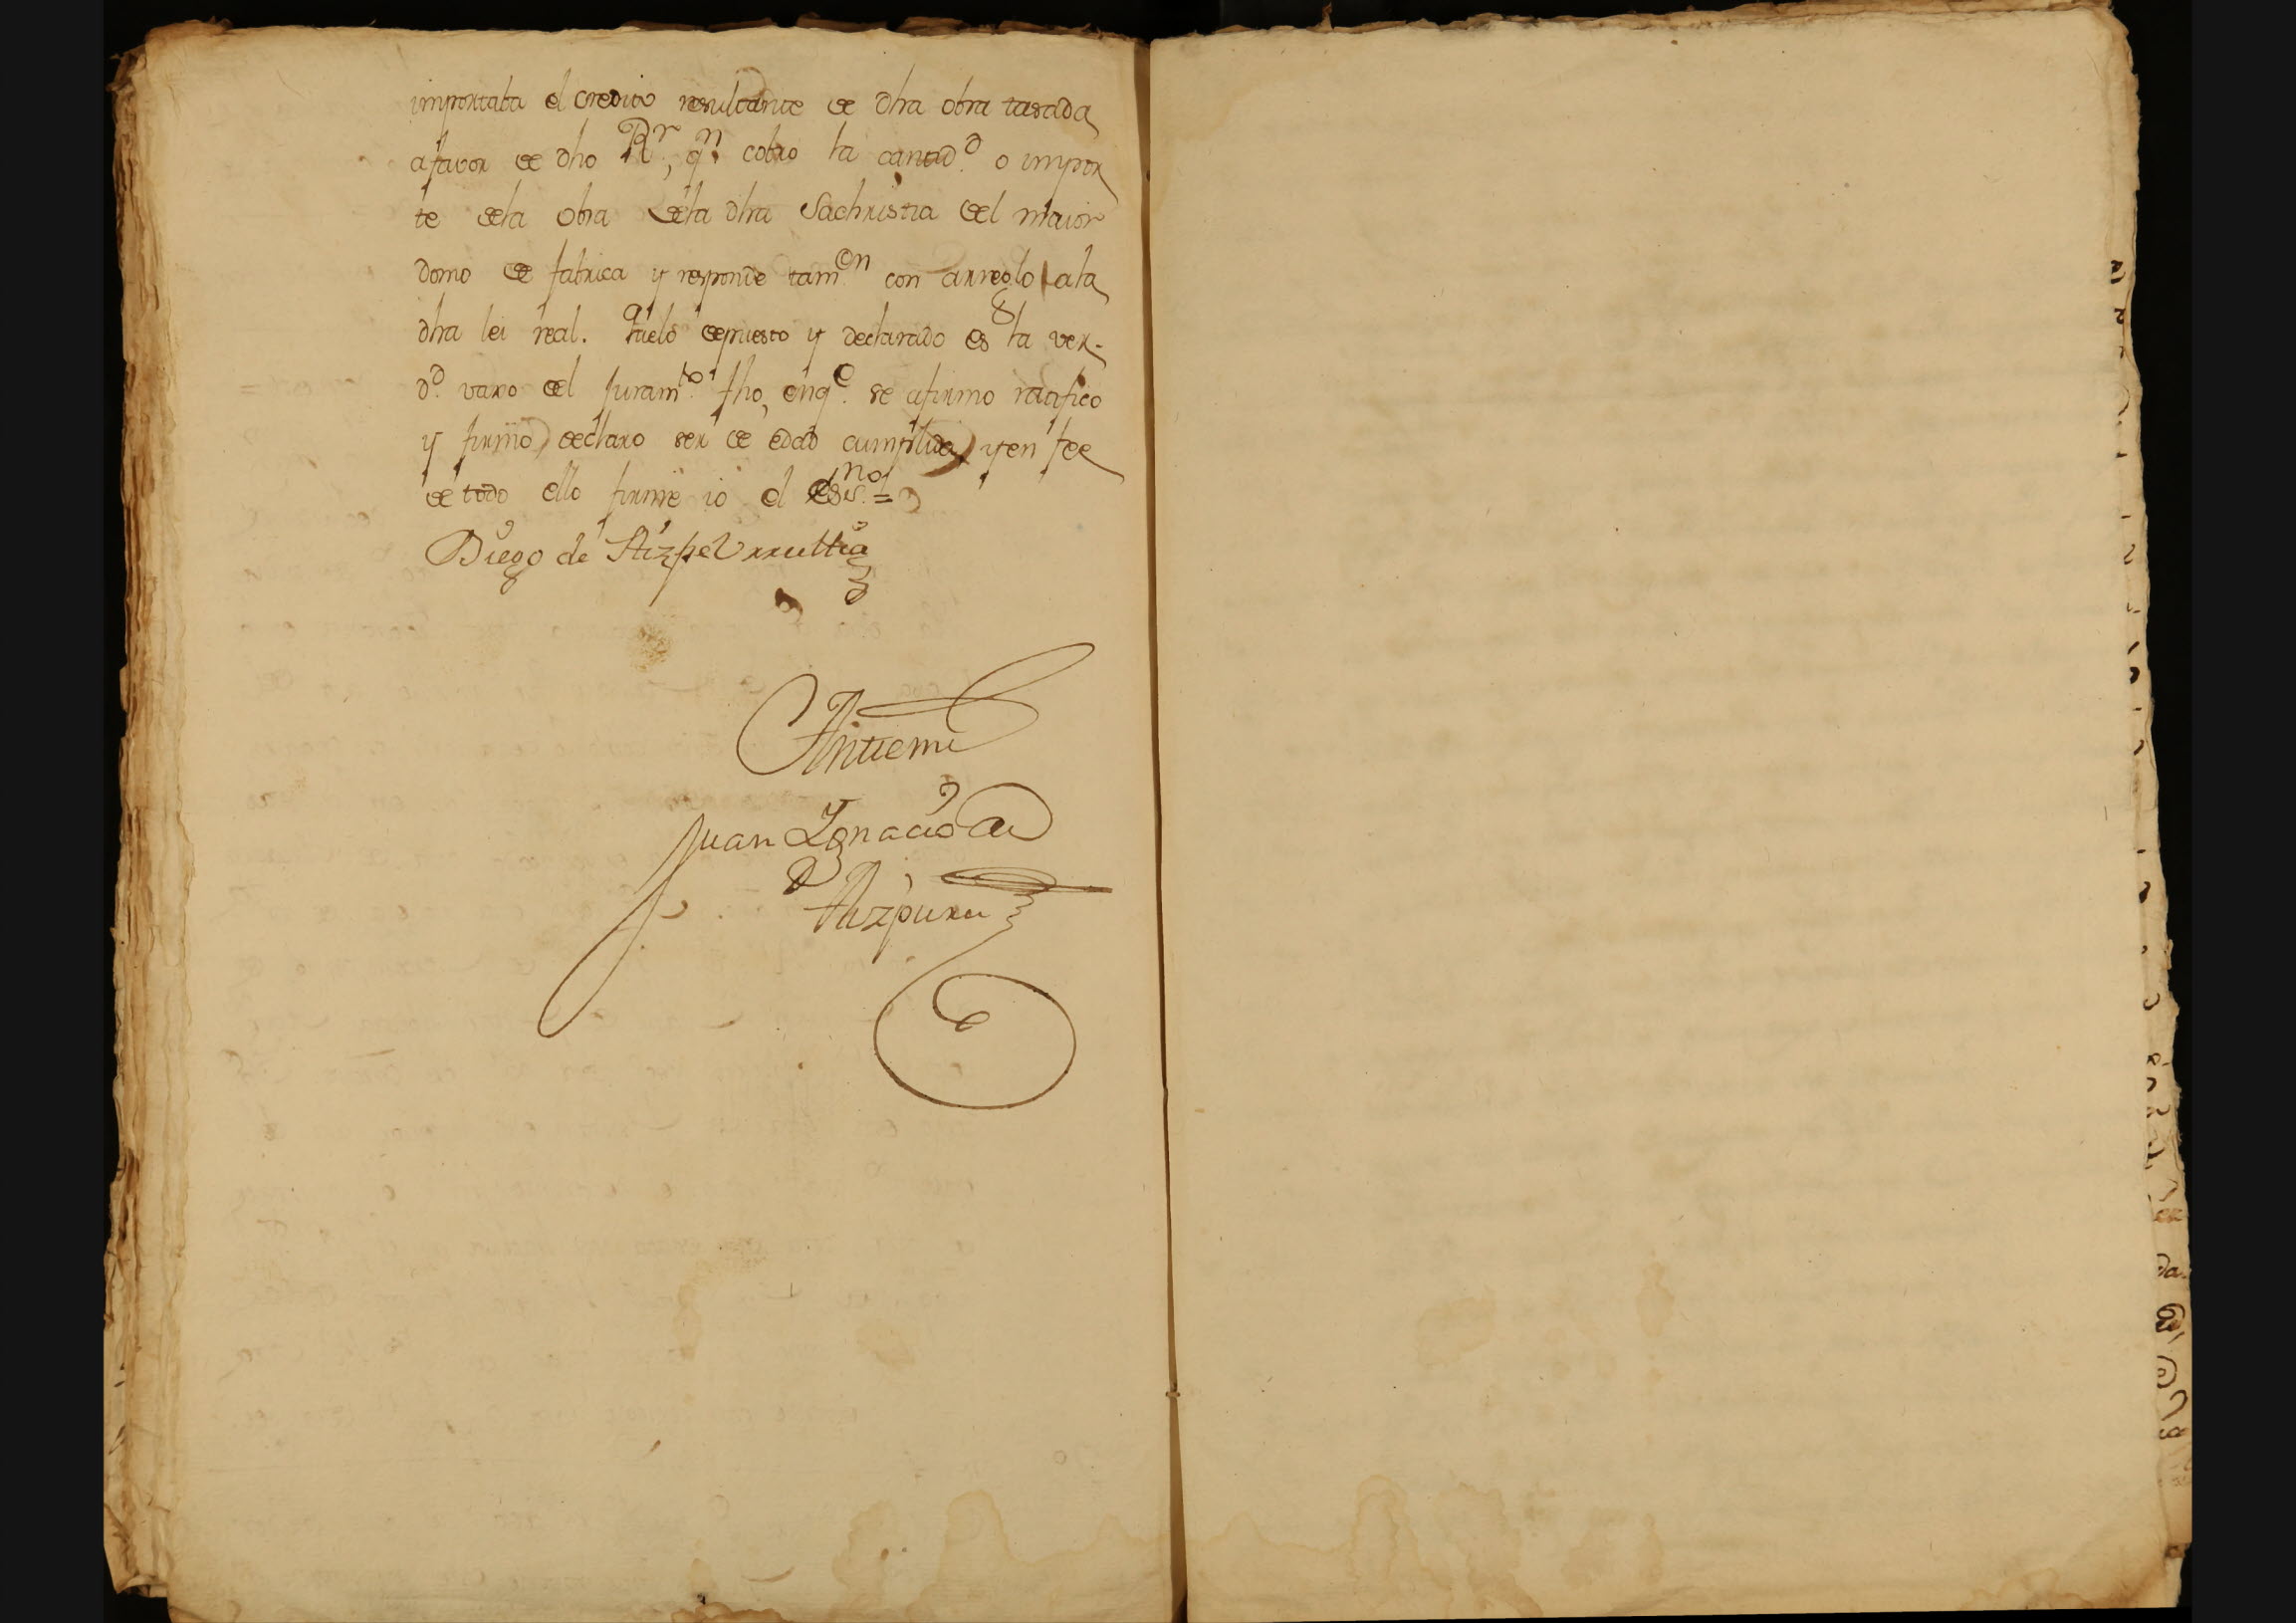 importaba el credito resultante de dha obra tasada
afavor de dho Rr, qn cobro la cantidd. o impor
te dela obra dela dha Sachristia del maior
domo de fabrica y responde tamen con arreglo ala
dha lei real. Quelo depuesto y declarado es la ver-
dd. vaxo del juramto. fho, enqe. se afirmo ratifico
y firmo, declaro ser de edad cumplida, yen fee
de todo ello firme io el essno. =
Diego de AizpeUrrutia
Antemi
Juan Ygnacio de
Aizpuru